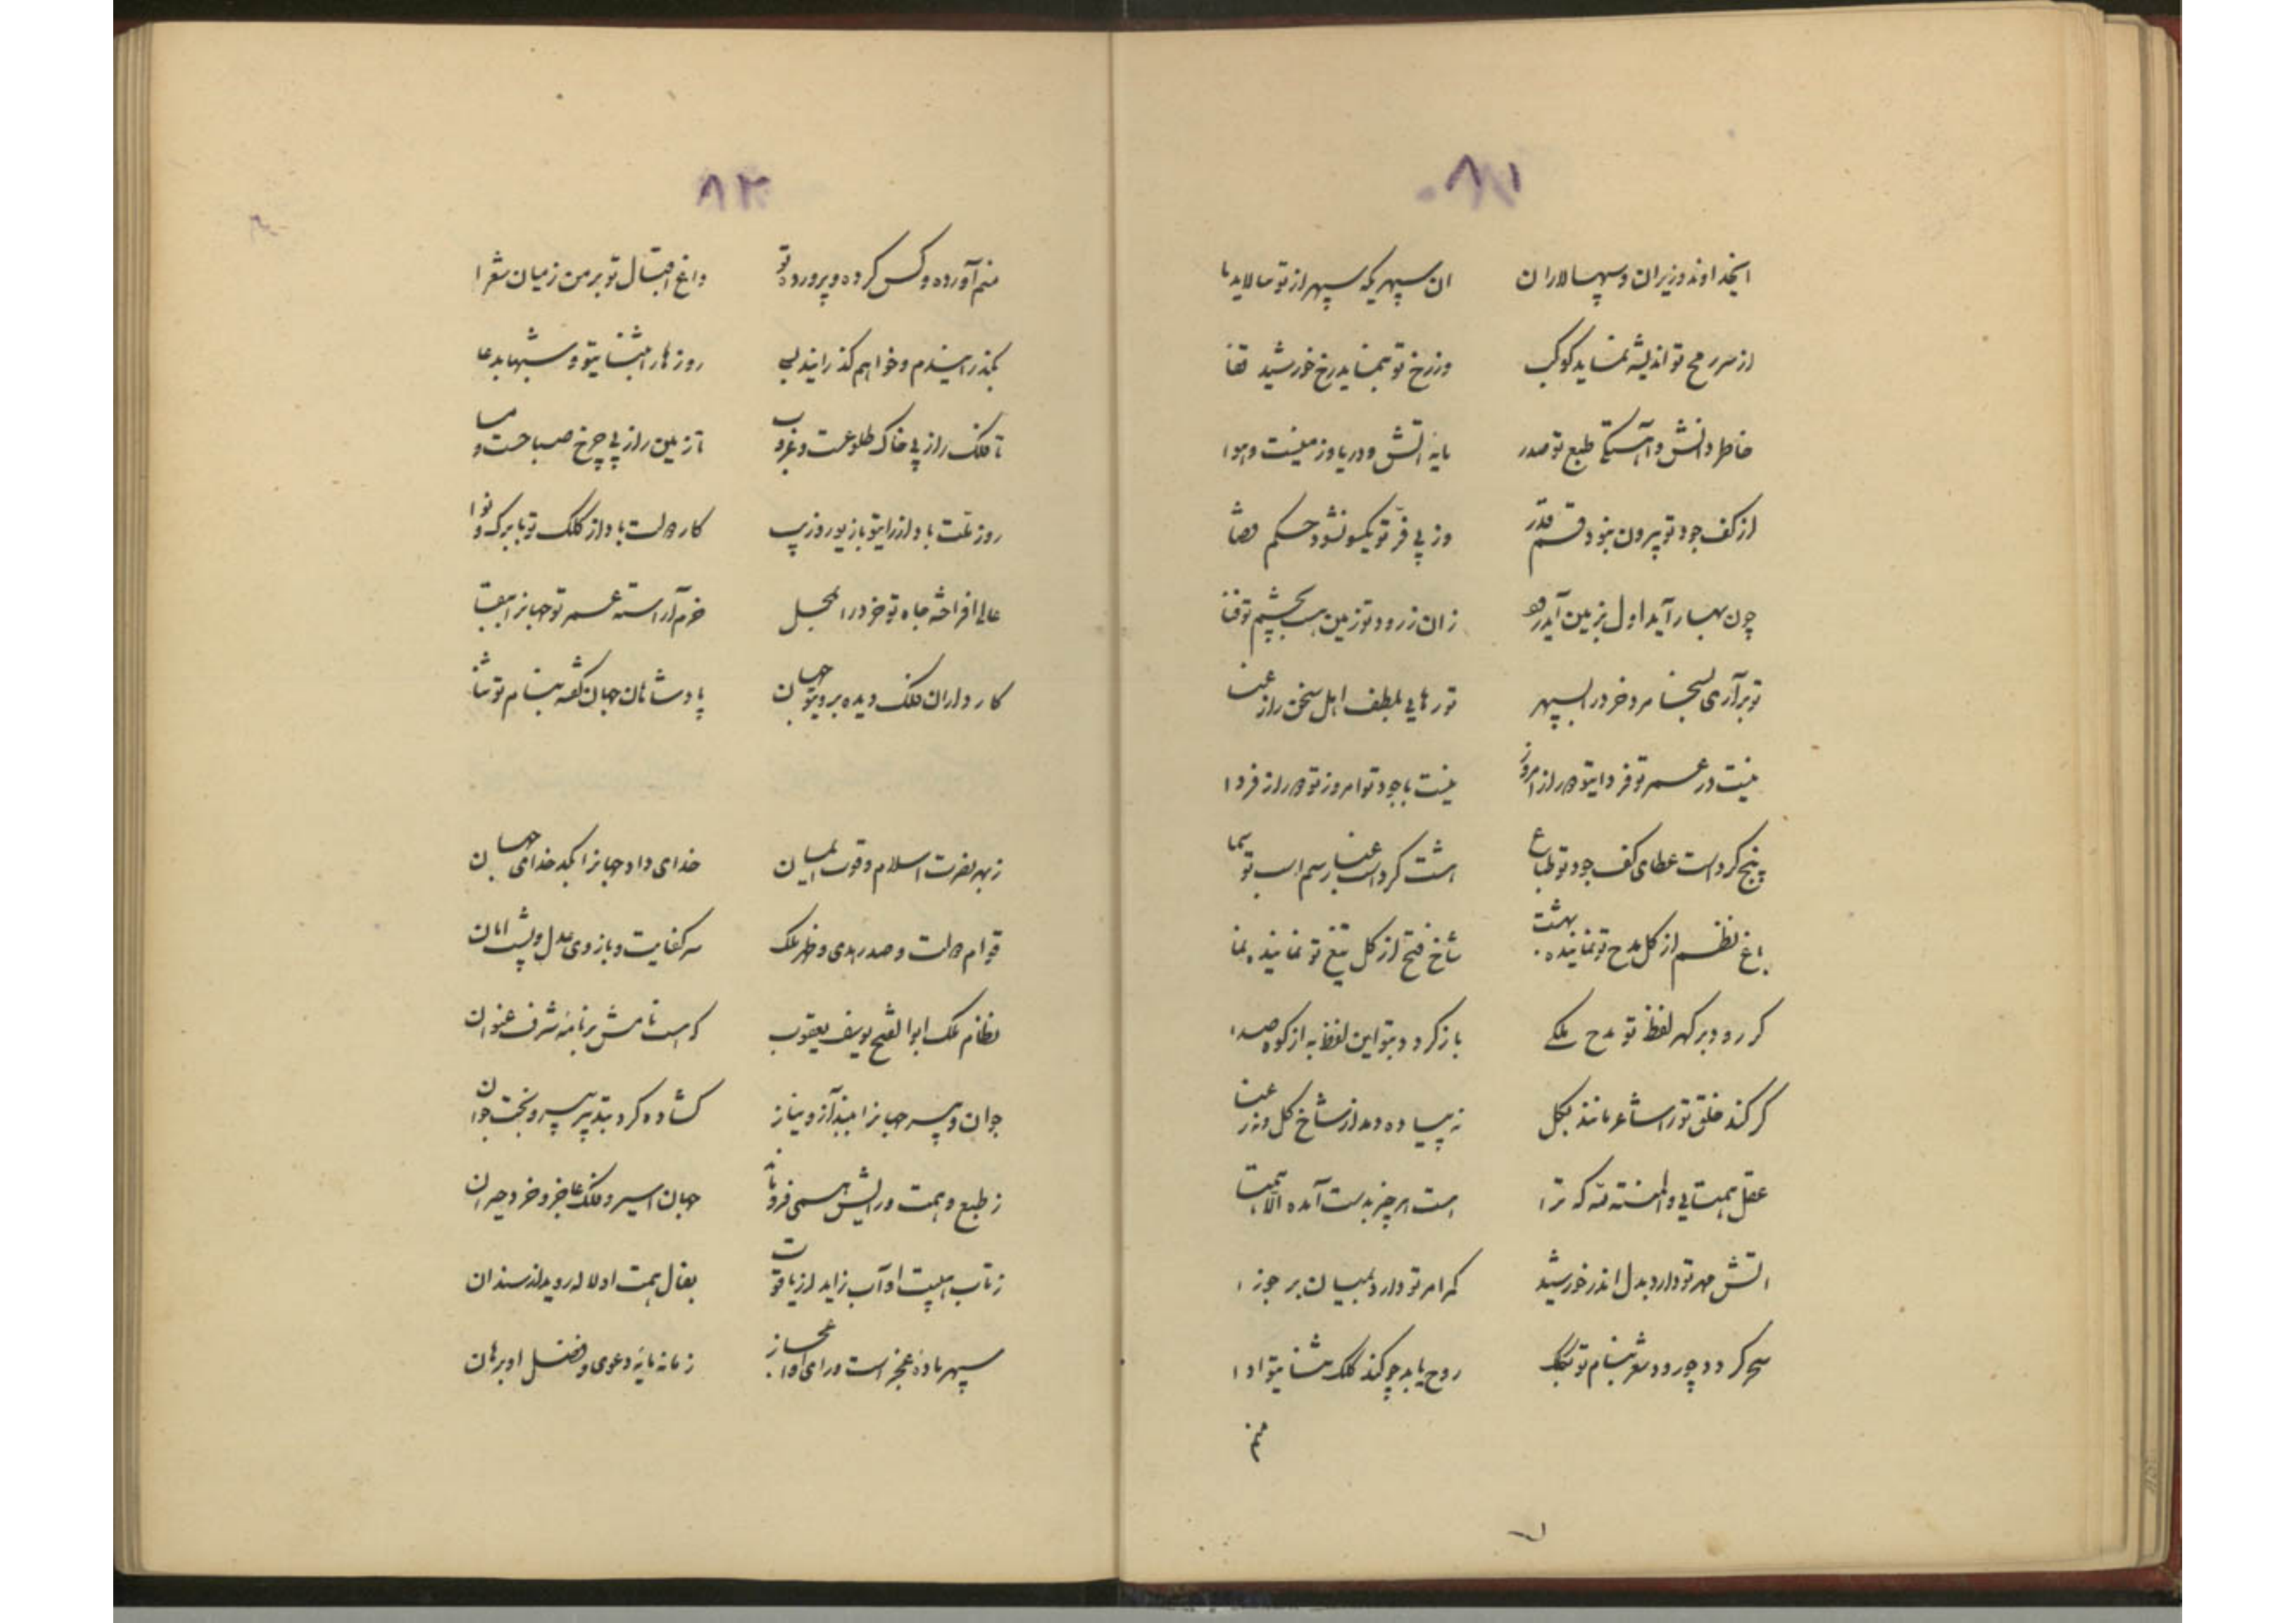 ۸۱
ایخداوند وزیران و سپهسالاران
ان سپهریکه سپهر از تو ببالاید پا
از سر رمح تو اندیشه نماید کوکب
وز رخ تو بنماید رخ خورشید قفا
خاطر و دانش و آهستگی طبع تو صدر
مایه اتش و دریا و زمینست و هوا
از کف جود تو بیرون نبود قسم قدر
وز پی فر تو یکسو نشود حکم قضا
چون بهار آید اول بزمین آید
زان زر و د تو زمین بچشم تو
تو برآری بسخا مرد خرد را بسپهر
تو رهایی بلطف اهل سخن را ز عنا
نیست در عمر تو فردای تو را از امروز
نیست با جود تو امروز تو را از فردا
پنج کرد است عطای کف جود تو طباع
هشت کرد است غبار سم اسب تو سما
باغ نظم از کل مدح تو نماینده بهشت
شاخ فتح از کل تیغ تو نماینده نما
کر رود بر کهر لفظ تو مدح ملکی
باز کردد بتو این لفظ به از کوه صدا
کر کند خلق تو را شاعر مانند بکل
نه پیاده دمد از شاخ کل و نه رعنا
عقل همتایی والمنته لله که ترا
هست هر چیز بدست آمده الا همتا
اتش مهر تو دارد بدل اندر خورشید
کمر امر تو دارد بمیان بر جوزا
سحر کردد چو رود شعر بنام تو
روح یابد چو کند کلک ثنای تو ادا
منم
۸۲
منم آورده و کس کرده و پرورده تو
داغ اقبال تو بر من زمیان شعرا
بگذرانیدم و خواهم گذرانید بسی
روزها را بثنای تو و شبها بدعا
تا فلک را ز پی خاک طلوعست و غروب
تا زمین را ز پی چرخ صباحست و مسا
روز ملت باد از رای تو با زیور و زیب
کار دولت باد از کلک تو با برک و نوا
عالی افراخته جاه تو خرد را بمحل
خرم آراسته عمر تو جهانرا ببقا
کارداران فلک دیده بروی تو جهان
پادشاهان جهان گفته بنام تو ثنا
ز بهر نصرت اسلام و قوت ایمان
خدای داد جهانرا بکدخدای جهان
قوام دولت و صدر هدی و ظهر ملک
سر کفایت و بازوی عدل و پشت امان
نظام ملک ابوالفتح یوسف یعقوب
که هست نامش بر نامه شرف عنوان
جوان و پیر جهانرا ببند آز و نیاز
کشاده کرد بتدبیر پیر و بخت جوان
ز طبع و همت و رایش همی فرو ماند
جهان اسیر و فلک عاجز و خرد حیران
ز تاب هیبت او آب زاید از یاقوت
بفال همت او لاله روید از سندان
سپهر ماده عجز است و رای او اعجاز
زمانه مایه دعوی و فضل او برهان